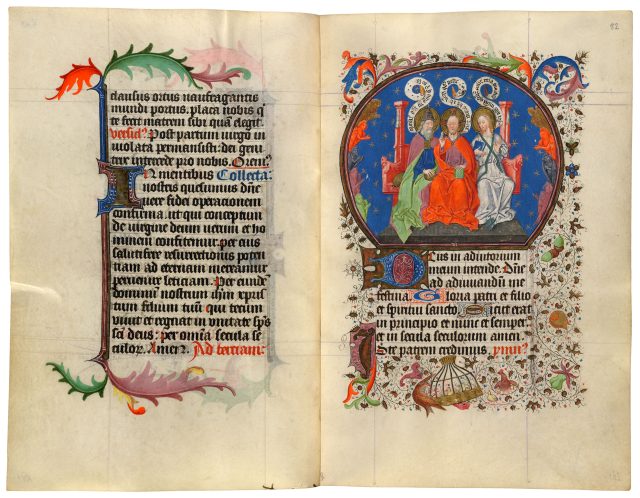 clausus ortus naufragantis
mundi portus. placa nobis q̄
te fecit matrem sibi quā elegit.
versic̄. Post partum uirgo in
uiolata permansisti. dei geni
trix intercede pro nobis. Orem᷒.
In mentibus Collecta:
nostris quesumus dn̄e
uere fidei operationem
confirma. ut qui conceptum
de uirgine deum uerum et ho
minem confitemur. per eius
salutifere resurrectionis poten
tiam ad eternam mereamur
peruenire leticiam. Per eundē
dominum nostrum ihm xpis
tum filium tuū. qui tecum
uiuit et regnat in unitate sp̄s
sc̄i deus: per omnia secula se
culorum. Amen. Ad terciam:
82
Deus in adiutorium
meum intende. Dn̄e
ad adiuuandū me
festina. Gloria patri et filio
et spiritui sancto. Sicut erat
in principio et nunc et semper
et in secula seculorum amen.
patrem credimus.